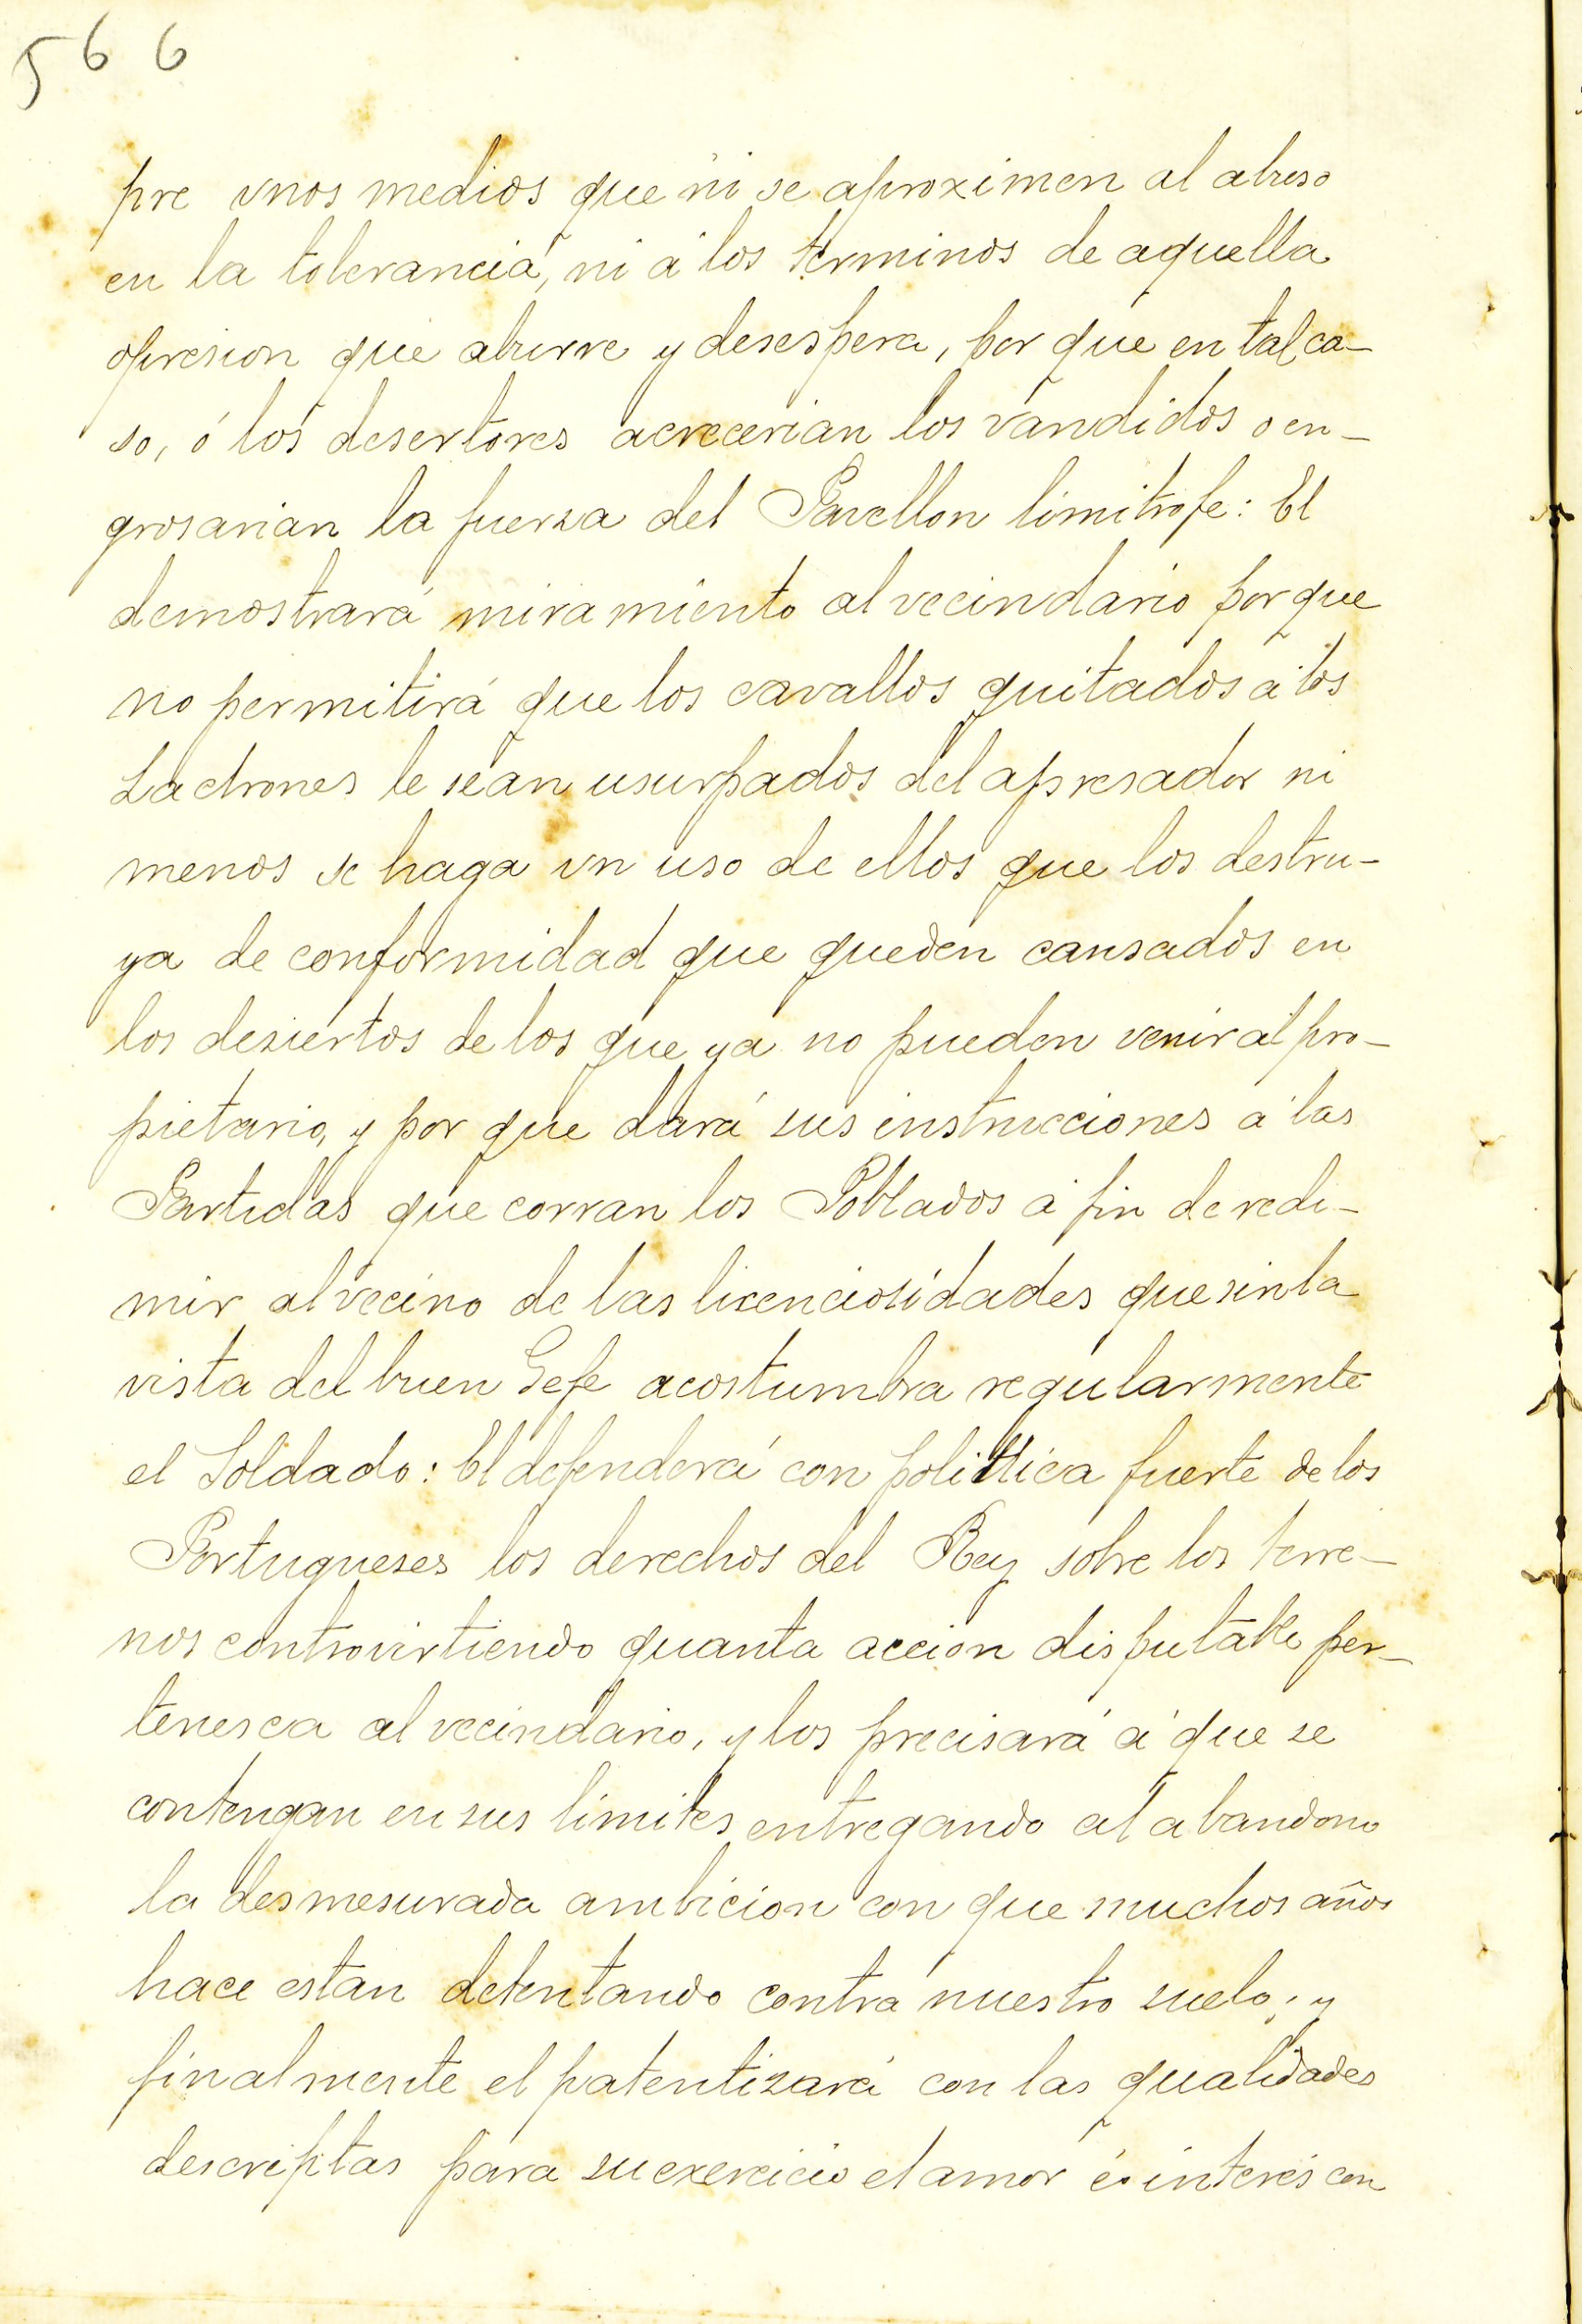 566
pre vnos medios que ni se aproximen al abuso
en la tolerancia, ni á los terminos de aquella
opresion que aburre y desespera, por que en tal ca-
so, ó los desertores acrecerian los vandidos o en-
grosarian la fuerza del Pavellon limitrofe: El
demostrará miramiento al vecindario por que
no permitirá que los cavallos quitados á los
Ladrones le sean usurpados del apresador ni
menos se haga vn uso de ellos que los destru-
ya de conformidad que queden cansados en
los desiertos de los que ya no pueden venir al pro-
pietario, y por que dará sus instrucciones á las
Partidas que corran los Poblados á fin de redi-
mir al vecino de las licenciosidades que sin la
vista del buen Gefe acostumbra regularmente
el Soldado: El defenderá con polittica fuerte de los
Portugueses los derechos del Rey sobre los terre-
nos controvirtiendo quanta accion disputable per-
tenesca al vecindario, y los precisará á que se
contengan en sus limites entregando al abandono
la desmesurada ambicion con que muchos años
hace estan detentando contra nuestro suelo; y
finalmente el patentizará con las qualidades
descriptas para su exercicio el amor é interés con